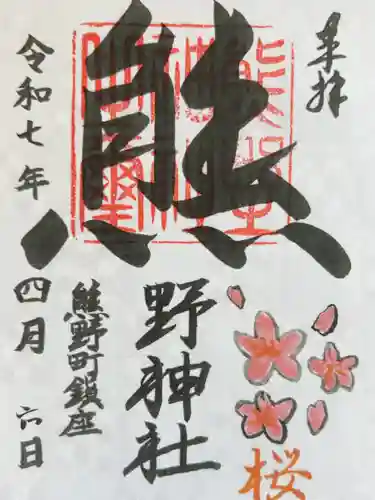 奉拝
熊
野神社
熊野町鎮座
令和七年
四月
六日
桜